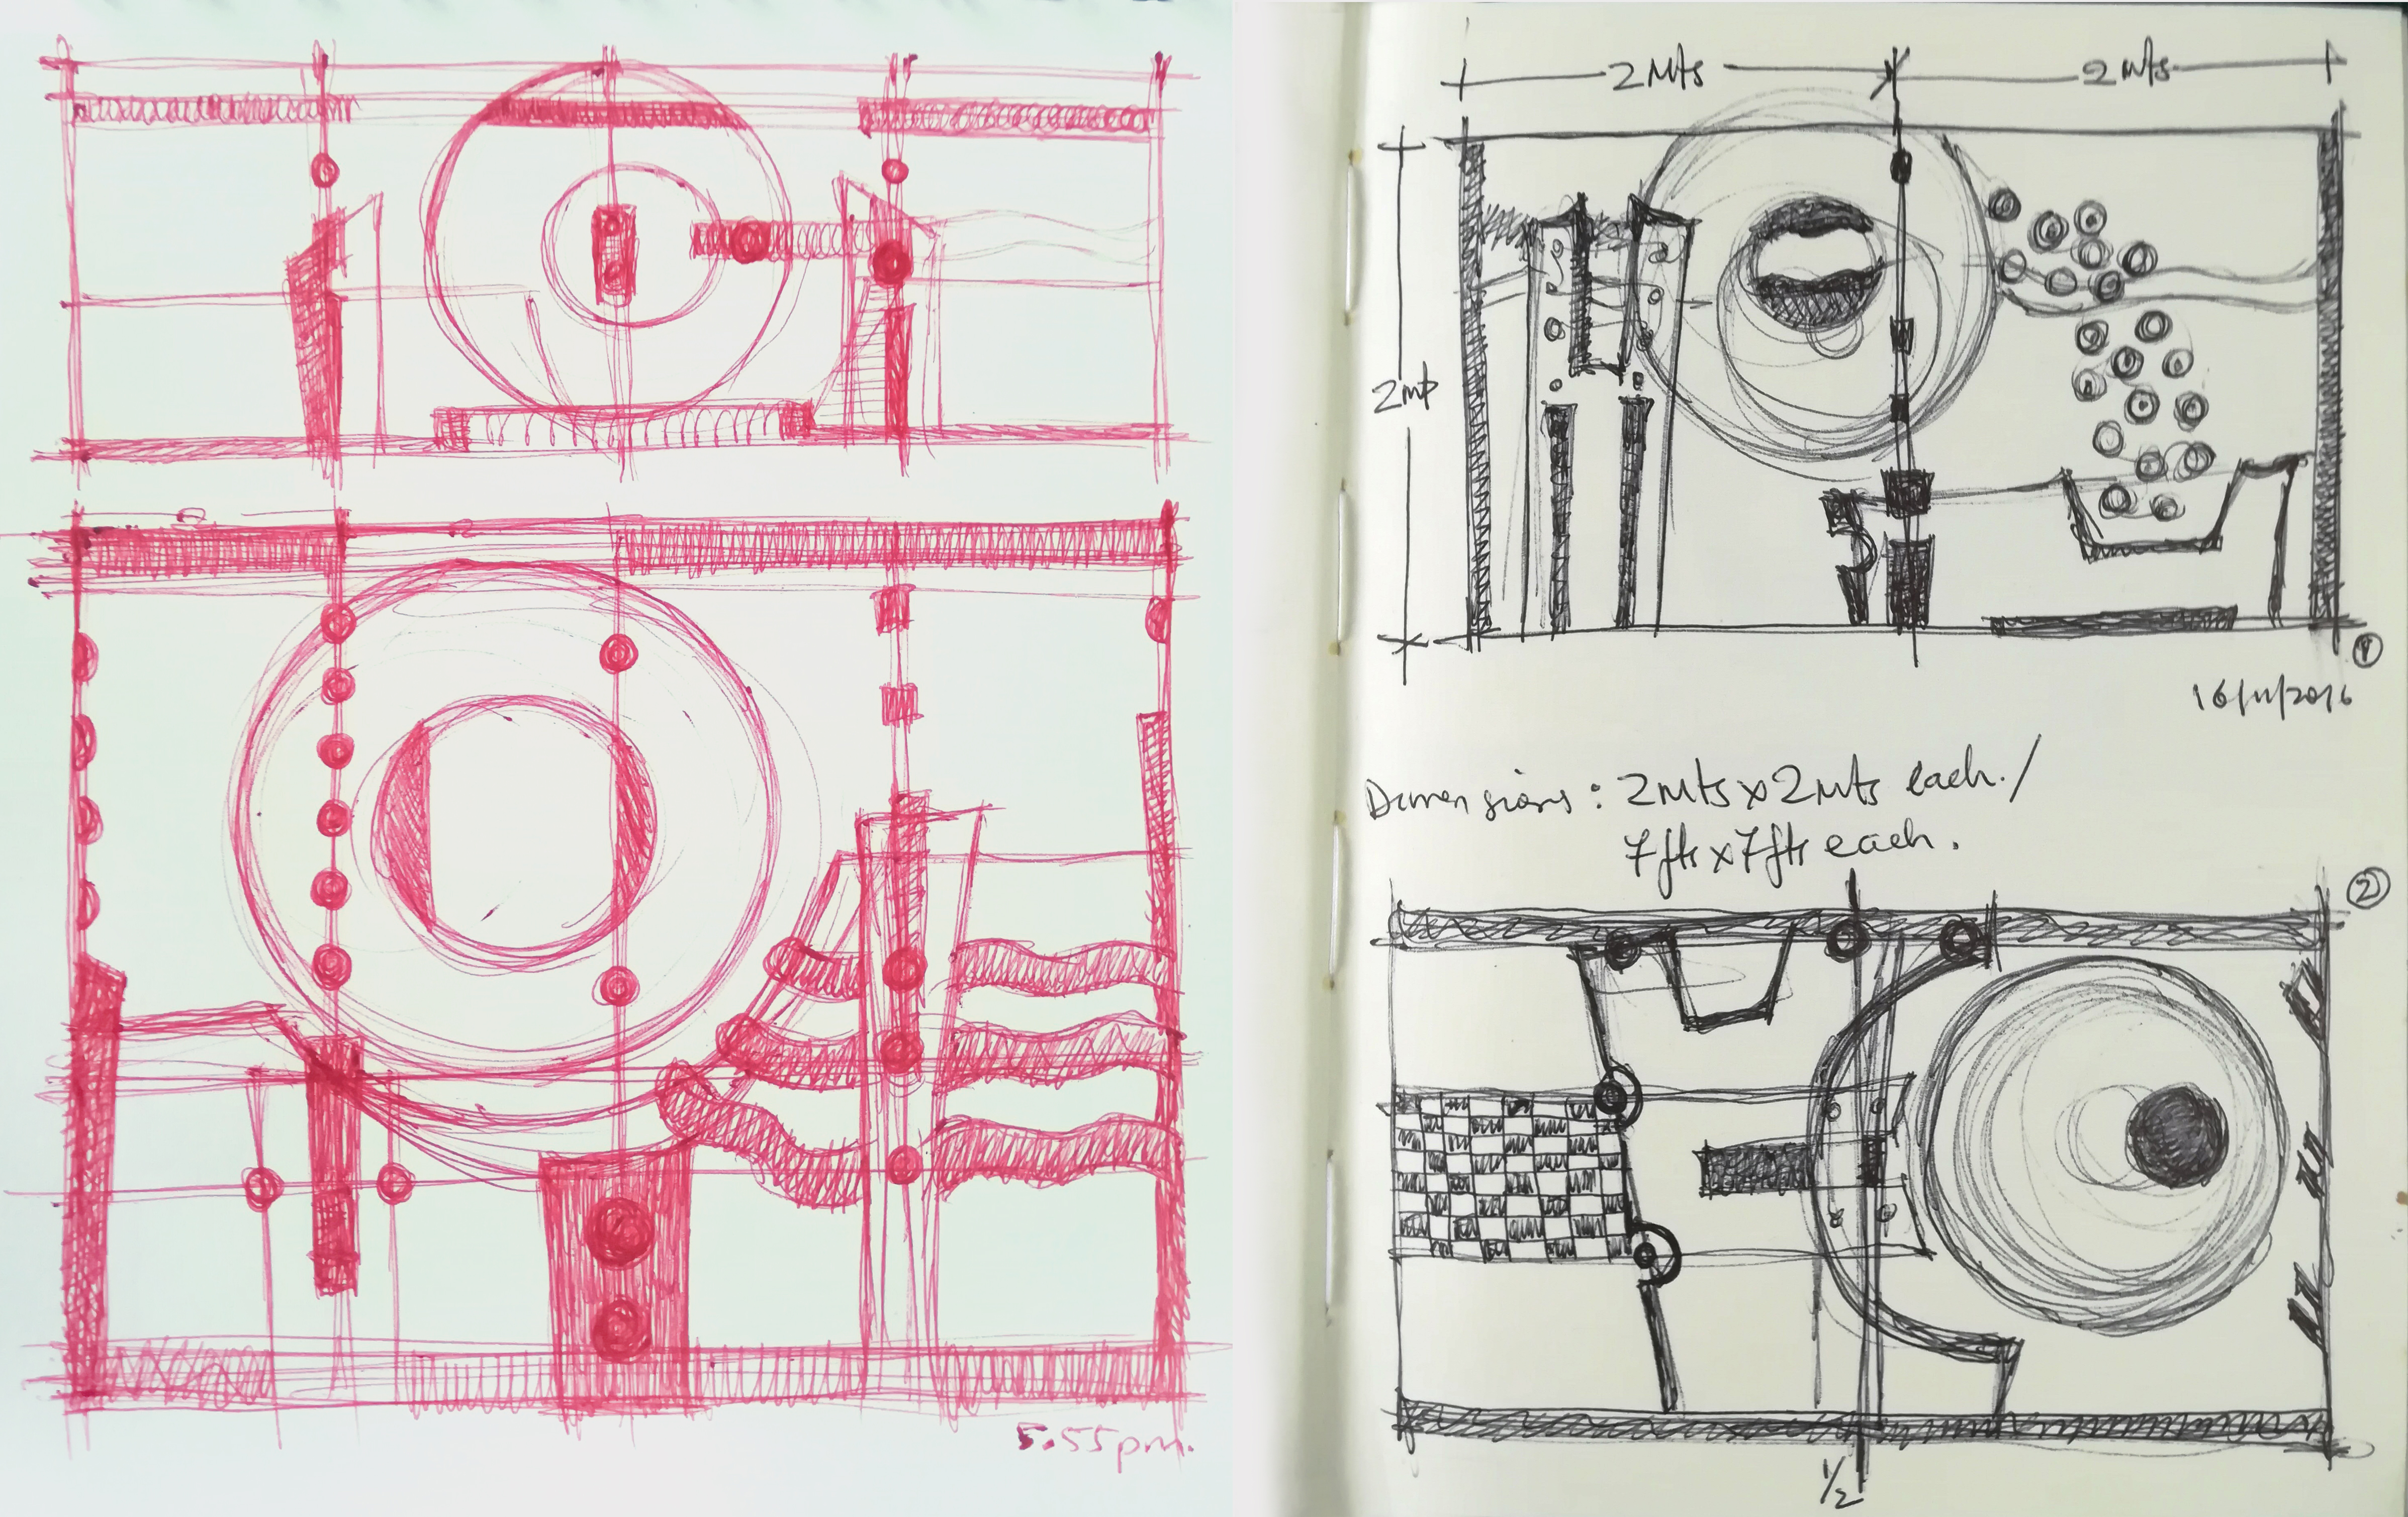 5.55pm.
2 Mts
2 mts
2 mt
1
16/11/2016
Dimensions: 2Mts x 2Mts each./
7fts x 7fts each.
2
1/2